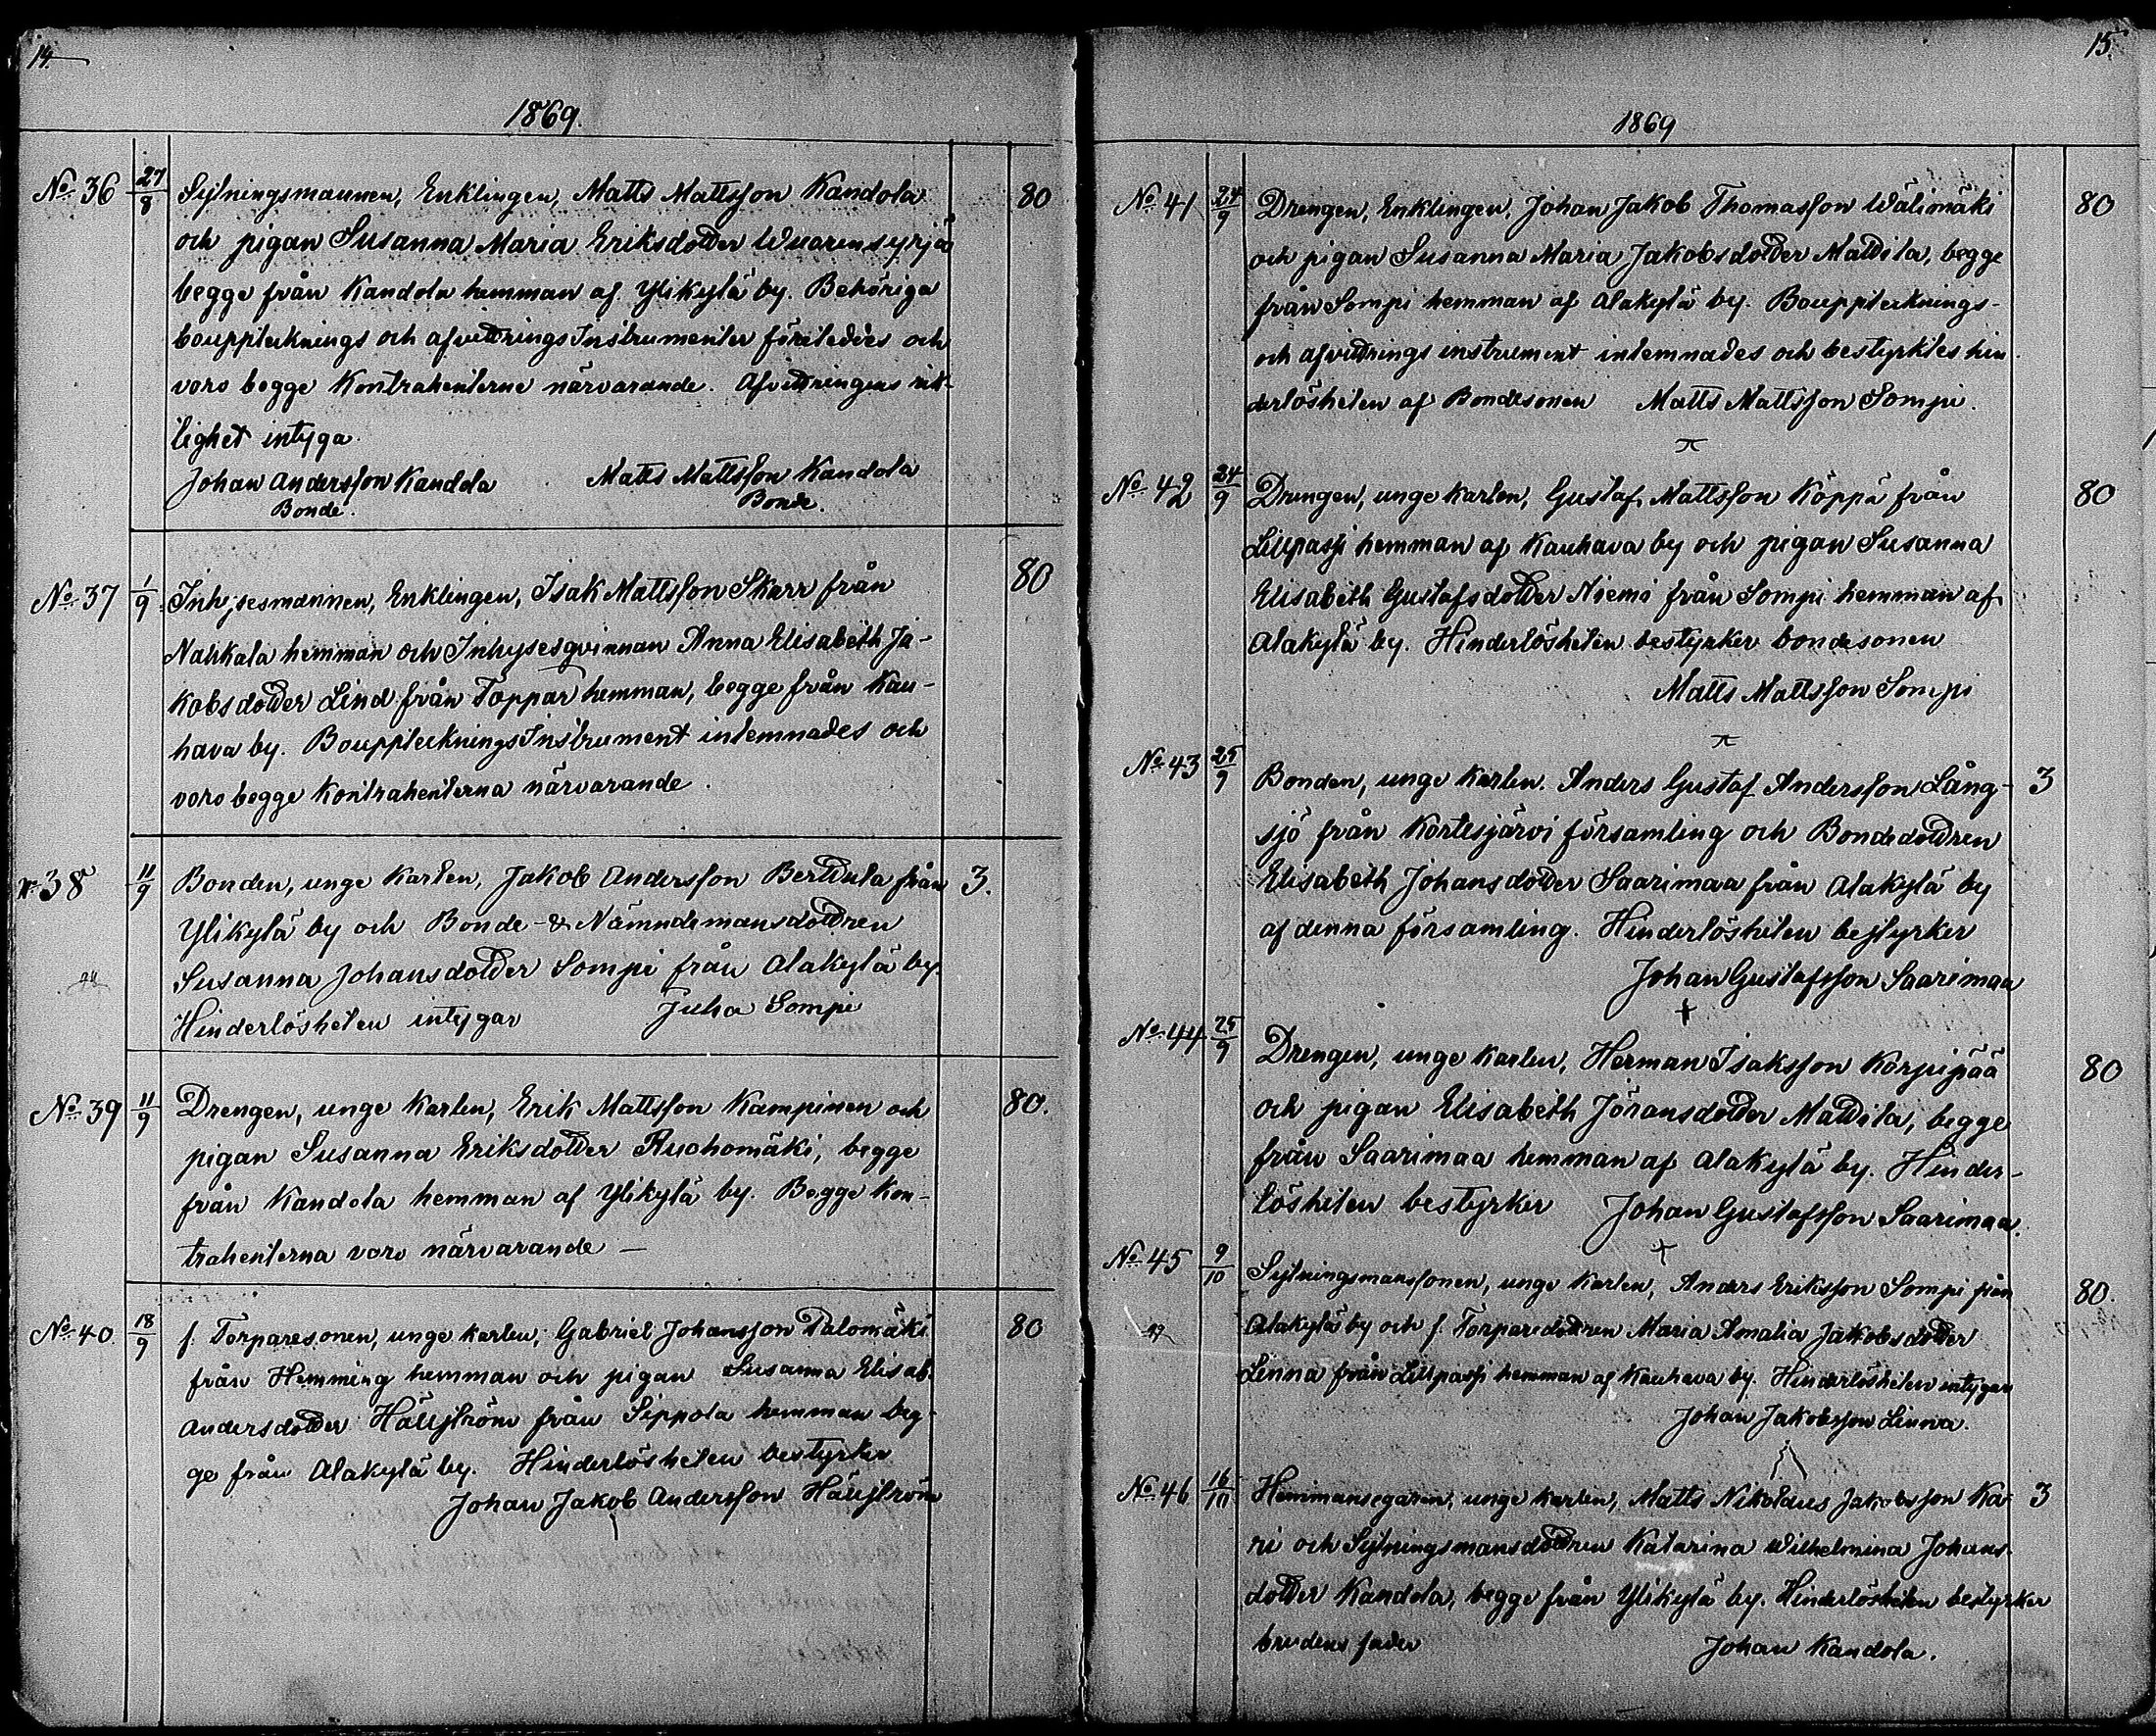 14.
1869.
No 36 27/8 Sytningsmannen, Enklingen, Matts Mattsson Kandola 80
och pigan Susanna Maria Eriksdotter Wuorensyrjä
begge från Kandola hemman af Ylikylä by. Behöriga
bouppteknings och afvittrings Instrumenter företeddes och
voro begge Kontrahenterne närvarande. Afvittringens rik-
tighet intyga
Johan Andersson Kandola Matts Mattsson Kandola
Bonde. Bonde.
No 37 1/9 Inhysesmannen, Enklingen, Isak Mattsson Skarr från 80
Nahkala hemman och Inhysesqvinnan Anna Elisabeth Ja-
kobsdotter Lind från Toppar hemman, begge från Kau-
hava by. Bouppteknings Instrument inlemnades och
voro begge Kontrahenterna närvarande.
No 38 11/9 Bonden, unge karlen, Jakob Andersson Berttula från 3.
Ylikylä by och Bonde- & Nämndemansdottren
Susanna Johansdotter Sompi från Alakylä by.
Hinderlösheten intygar Juha Sompi
No 39 11/9 Drengen, unge karlen, Erik Mattsson Kampinen och 80.
pigan Susanna Eriksdotter Ruohomäki, begge
från Kandola hemman af Ylikylä by. Begge Kon-
trahenterna voro närvarande —
No 40 18/9 f. Torparesonen, unge karlen, Gabriel Johansson Palomäki 80
från Hemming hemman och pigan Susanna Elisab.
Andersdotter Hällström från Sippola hemman beg-
ge från Alakylä by. Hinderlösheten bestyrker
Johan Jakob Andersson Hällström
15.
1869
No 41 24/9 Drengen, Enklingen, Johan Jakob Thomasson Wälimäki 80
och pigan Susanna Maria Jakobsdotter Mattila, begge
från Sompi hemman af Alakylä by. Bouppteknings-
och afvittrings instrument inlemnades och bestyrktes hin
derlösheten af Bondesonen Matts Mattsson Sompi.
No 42 24/9 Drengen, unge karlen, Gustaf Mattsson Köppä från 80
Lillpassi hemman af Kauhava by och pigan Susanna
Elisabeth Gustafsdotter Niemi från Sompi hemman af
Alakylä by. Hinderlösheten bestyrker bondesonen
Matts Mattsson Sompi
No 43 25/9 Bonden, unge karlen. Anders Gustaf Andersson Lång- 3
sjö från Kortesjärvi församling och Bondedottren
Elisabeth Johansdotter Saarimaa från Alakylä by
af denna församling. Hinderlösheten bestyrker
Johan Gustafsson Saarimaa
No 44 25/9 Drengen, unge karlen, Herman Isaksson Korpipää 80
och pigan Elisabeth Jöransdotter Mattila, begge
från Saarimaa hemman af Alakylä by. Hinder-
lösheten bestyrker Johan Gustafsson Saarimaa.
No 45 9/10 Sytningsmanssonen, unge karlen, Anders Eriksson Sompi från 80.
Alakylä by och f. Torparedottren Maria Amalia Jakobsdotter
Linna från Lillpassi hemman af Kauhava by. Hinderlösheten intygar
Johan Jakobsson Linna.
No 46 16/10 Hemmansegaren, unge karlen, Matts Nikolaus Jakobsson Ka- 3
ri och Sytningsmansdottren Katarina Wilhelmina Johans-
dotter Kandola, begge från Ylikylä by. Hinderlösheten bestyrker
brudens fader Johan Kandola.